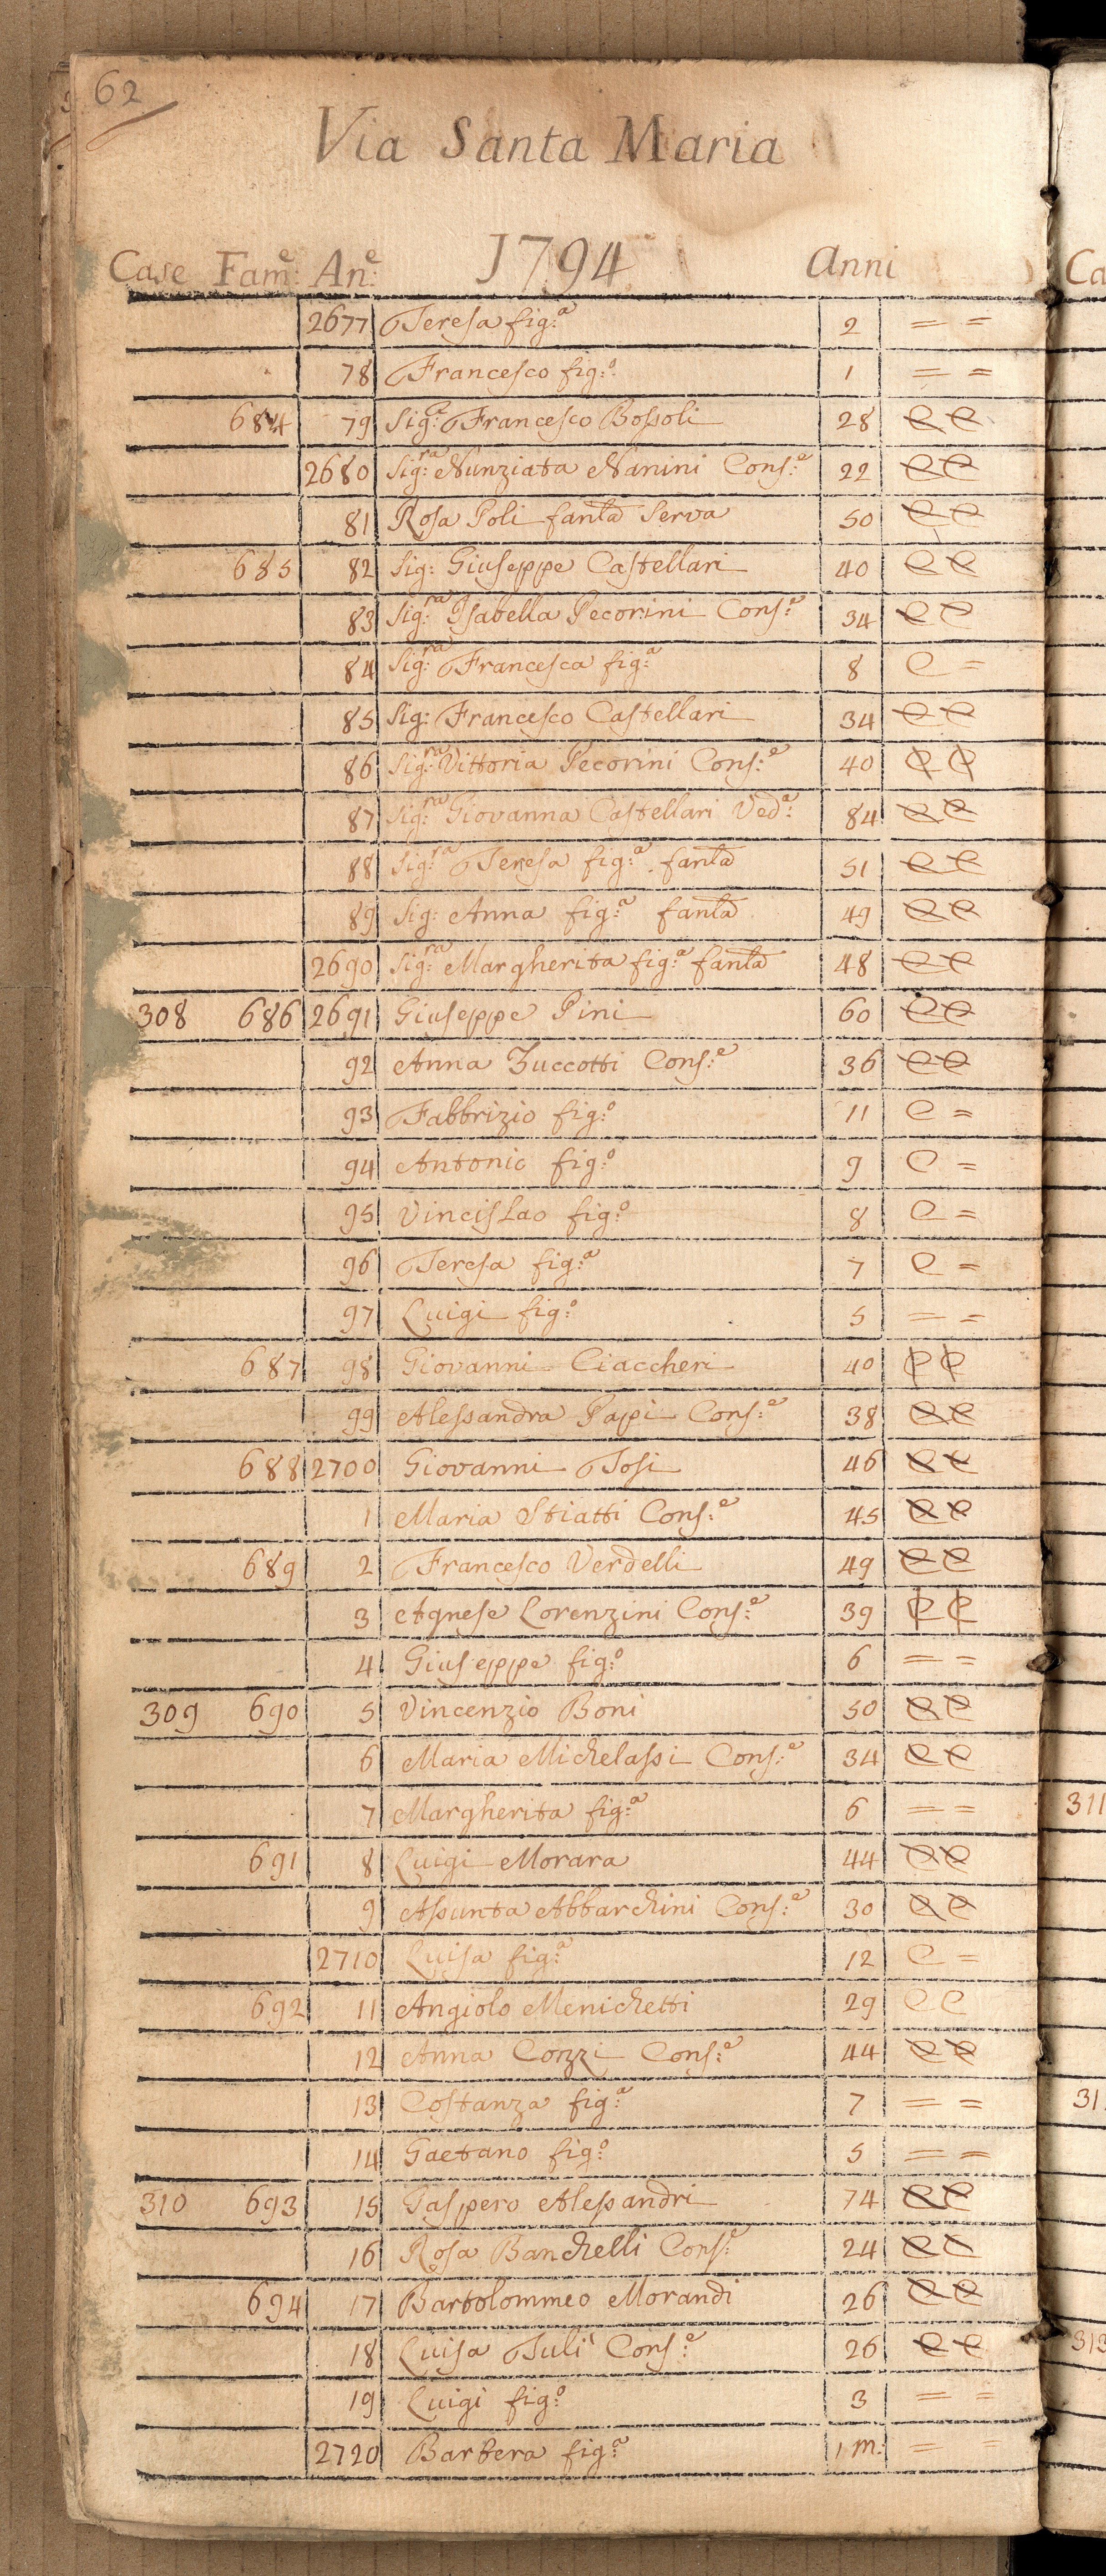 62
Via Santa Maria
Case Fam:e An:e 1794 Anni
2677 Teresa fig:a 2 = =
78 Francesco fig:o 1 = =
684 79 Sig:e Francesco Bossoli 28 C C
2680 Sig:ra Nunziata Nanini Cons:e 22 C C
81 Rosa Poli fanla Serva 50 C C
685 82 Sig: Giuseppe Castellari 40 C C
83 Sig:ra Isabella Pecorini Cons:e 34 C C
84 Sig:ra Francesca fig:a 8 C =
85 Sig: Francesco Castellari 34 C C
86 Sig:ra Vittoria Pecorini Cons:e 40 C C
87 Sig:ra Giovanna Castellari Ved:a 84 C C
88 Sig:a Teresa fig:a fanla 51 C C
89 Sig: Anna fig:a fanla 49 C C
2690 Sig:ra Margherita fig:a fanla 48 C C
308 686 2691 Giuseppe Pini 60 C C
92 Anna Zuccotti Cons:e 36 C C
93 Fabbrizio fig:o 11 C =
94 Antonio fig:o 9 C =
95 Vincislao fig:o 8 C =
96 Teresa fig:a 7 C =
97 Luigi fig:o 5 = =
687 98 Giovanni Ciaccheri 40 C C
99 Alessandra Papi Cons:e 38 C C
688 2700 Giovanni Tosi 46 C C
1 Maria Stiatti Cons:e 45 C C
689 2 Francesco Verdelli 49 C C
3 Agnese Lorenzini Cons:e 39 C C
4 Giuseppe fig:o 6 = =
309 690 5 Vincenzio Boni 50 C C
6 Maria Michelassi Cons:e 34 C C
7 Margherita fig:a 6 = =
691 8 Luigi Morara 44 C C
9 Assunta Abbarchini Cons:e 30 C C
2710 Luisa fig:a 12 C =
692 11 Angiolo Menichetti 29 C C
12 Anna Conzi Cons:e 44 C C
13 Costanza fig:a 7 = =
14 Gaetano fig:o 5 = =
310 693 15 Gaspero Alessandri 74 C C
16 Rosa Banchelli Cons:e 24 C C
694 17 Bartolommeo Morandi 26 C C
18 Luisa Tuli Cons:e 26 C C
19 Luigi fig:o 3 = =
2720 Barbera fig:a 1 m: = =
Ca
311
313